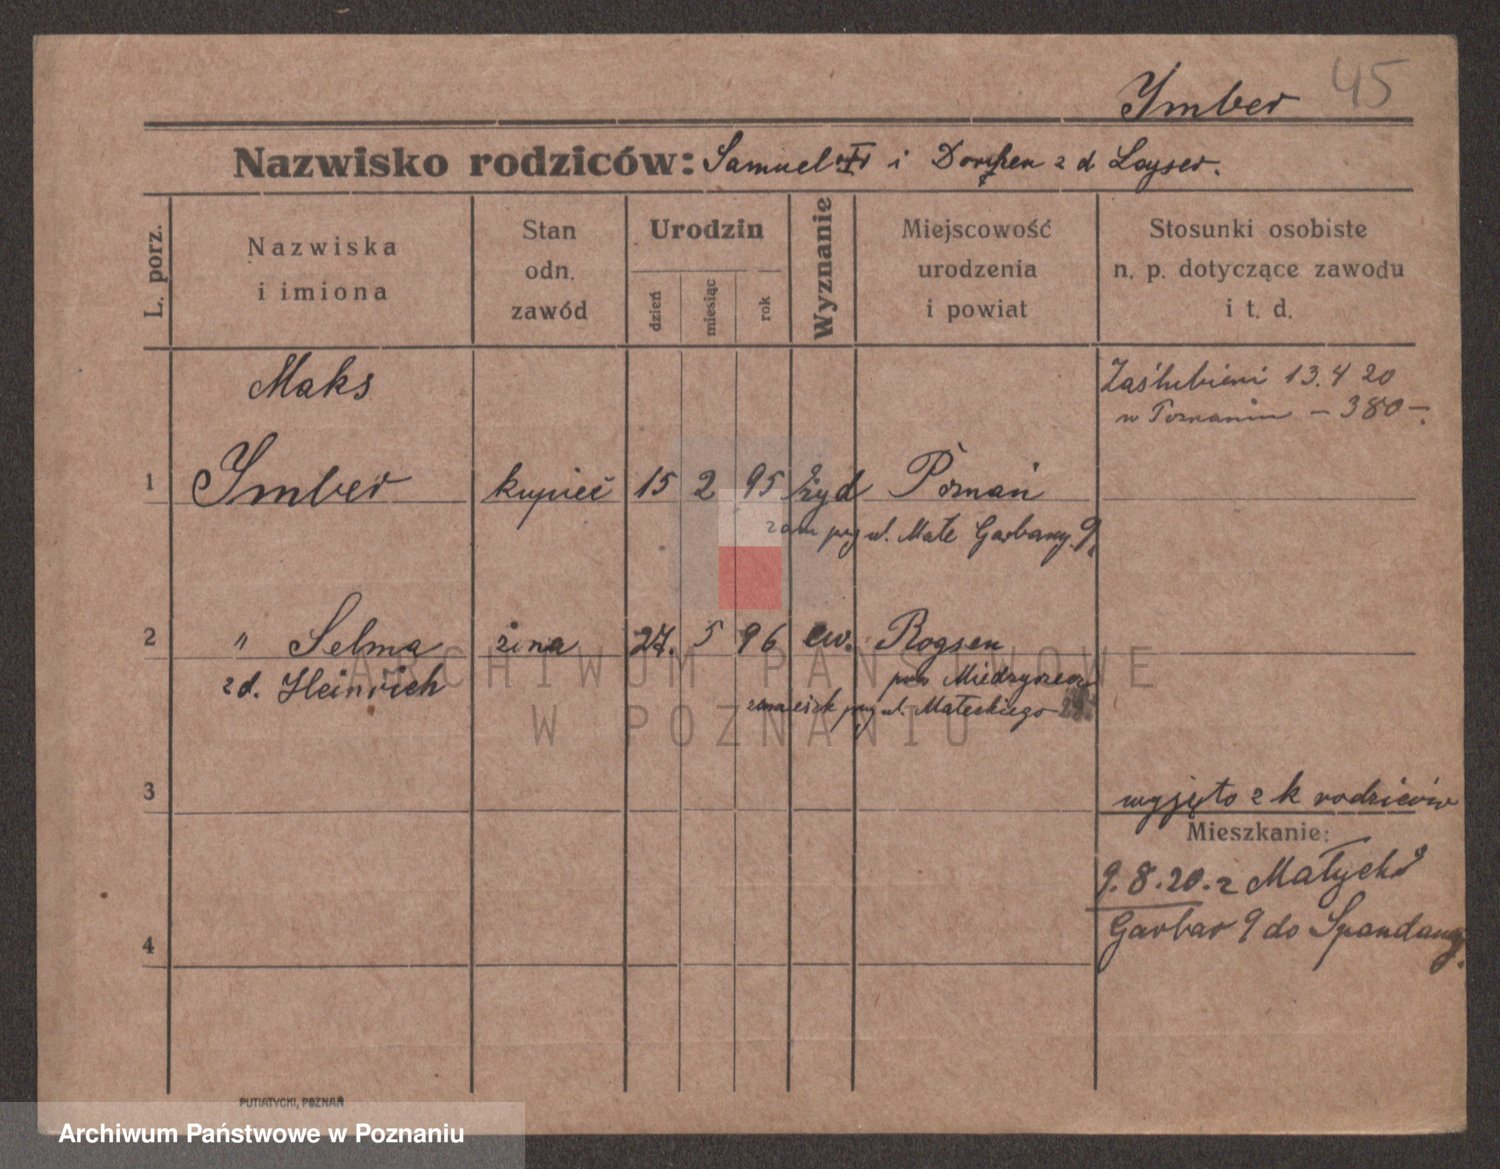 Ymber 45
Nazwisko rodziców: Samuel II i Dorchen z d Loyser.
L. porz.
Nazwiska
i imiona
Stan
odn.
zawód
Urodzin
dzień
miesiąc
rok
Wyznanie
Miejscowość
urodzenia
i powiat
Stosunki osobiste
n. p. dotyczące zawodu
i t. d.
Maks
Zaślubieni 13.4 20
w Poznaniu – 380 –.
1 Ymber kupiec 15 2 95 żyd Poznań
zam przy ul. Małe Garbary 9,
2 " Selma żona 27. 5 96 ew. Rogsen
z d. Heinrich pow Międzyrzecz
zamieszk przy ul. Małeckiego
3 wyjęto z k rodziców
Mieszkanie:
9.8.20. z Małych
4 Garbar 9 do Spandawy.
PUTIATYCKI, POZNAŃ
ARCHIWUM PAŃSTWOWE
W POZNANIU
Archiwum Państwowe w Poznaniu